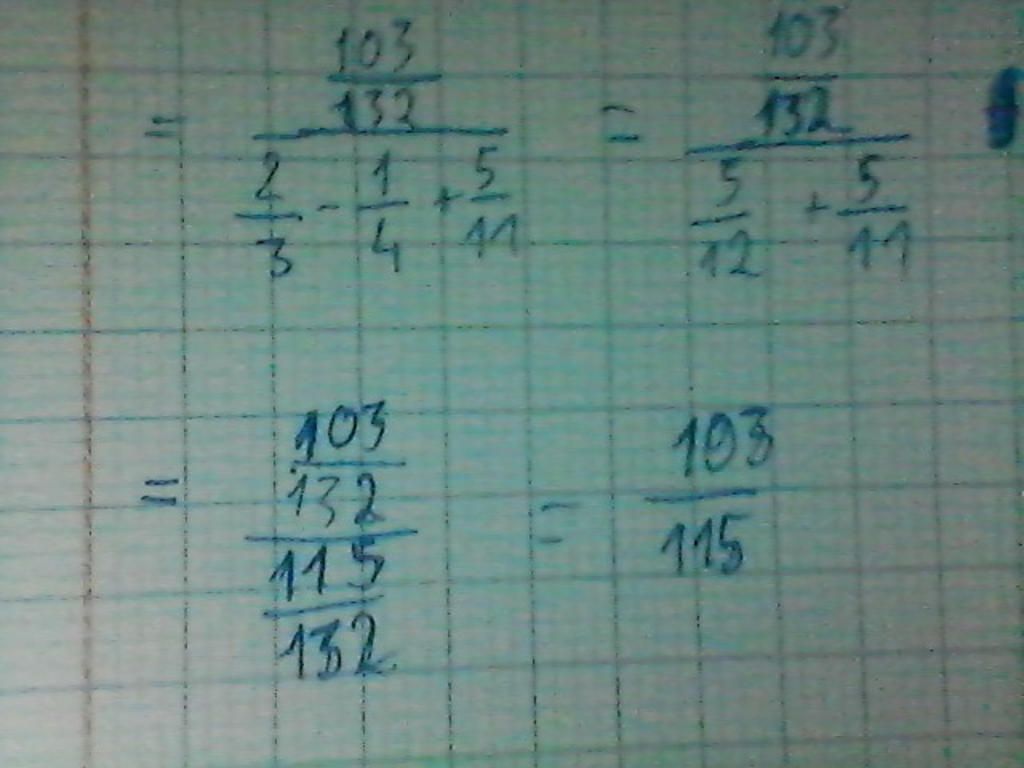 = \frac{\frac{103}{132}}{\frac{2}{3} - \frac{1}{4} + \frac{5}{11}} = \frac{\frac{103}{132}}{\frac{5}{12} + \frac{5}{11}}
= \frac{\frac{103}{132}}{\frac{115}{132}} = \frac{103}{115}